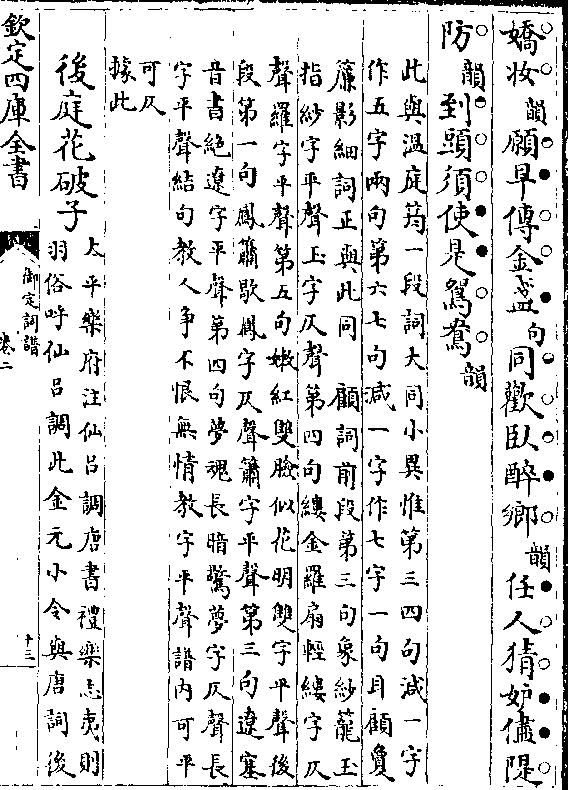 嬌妝韻願早傳金盞句同歡臥醉鄉韻任人猜妒儘隄
防韻到頭須使是鴛鴦韻
此與溫庭筠一段詞大同小異惟第三四句減一字
作五字兩句第六七句減一字作七字一句耳顧敻
簾影細詞正與此同　顧詞前段第三句象紗籠玉
指紗字平聲玉字仄聲第四句縷金羅扇輕縷字仄
聲羅字平聲第五句嫩紅雙臉似花明雙字平聲後
段第一句鳳簫歇鳳字仄聲簫字平聲第三句遼塞
音書絕遼字平聲第四句夢魂長暗驚夢字仄聲長
字平聲結句教人爭不恨無情教字平聲譜內可平
可仄
據此
後庭花破子
太平樂府注仙呂調唐書禮樂志夷則
羽俗呼仙呂調此金元小令與唐詞後
欽定四庫全書
御定詞譜
卷二
十三